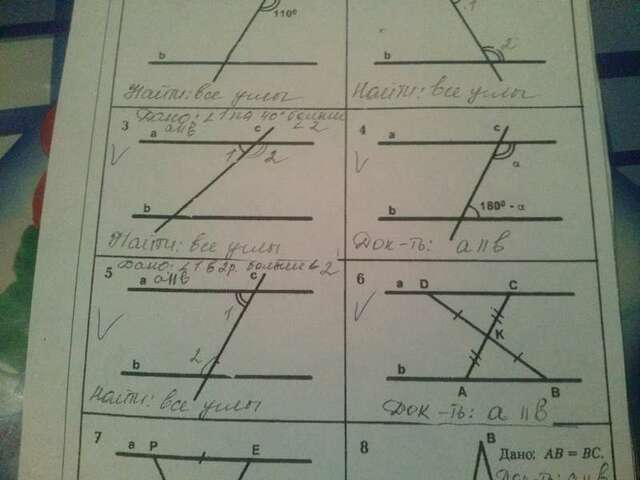 110°
1
b
b
2
Найти: все углы
Найти: все углы
3
Дано: ∠1 на 40° больше
∠2
a
a||b
c
1
2
b
Найти: все углы
4
a
c
α
180° - α
b
Док-ть: a||b
5
Дано: ∠1 в 2р. больше ∠2
a
a||b
c
1
2
b
Найти: все углы
6
a
D
C
K
b
A
B
Док-ть: a||b
7
a
P
E
8
B
Дано: AB = BC.
Док-ть: a||b